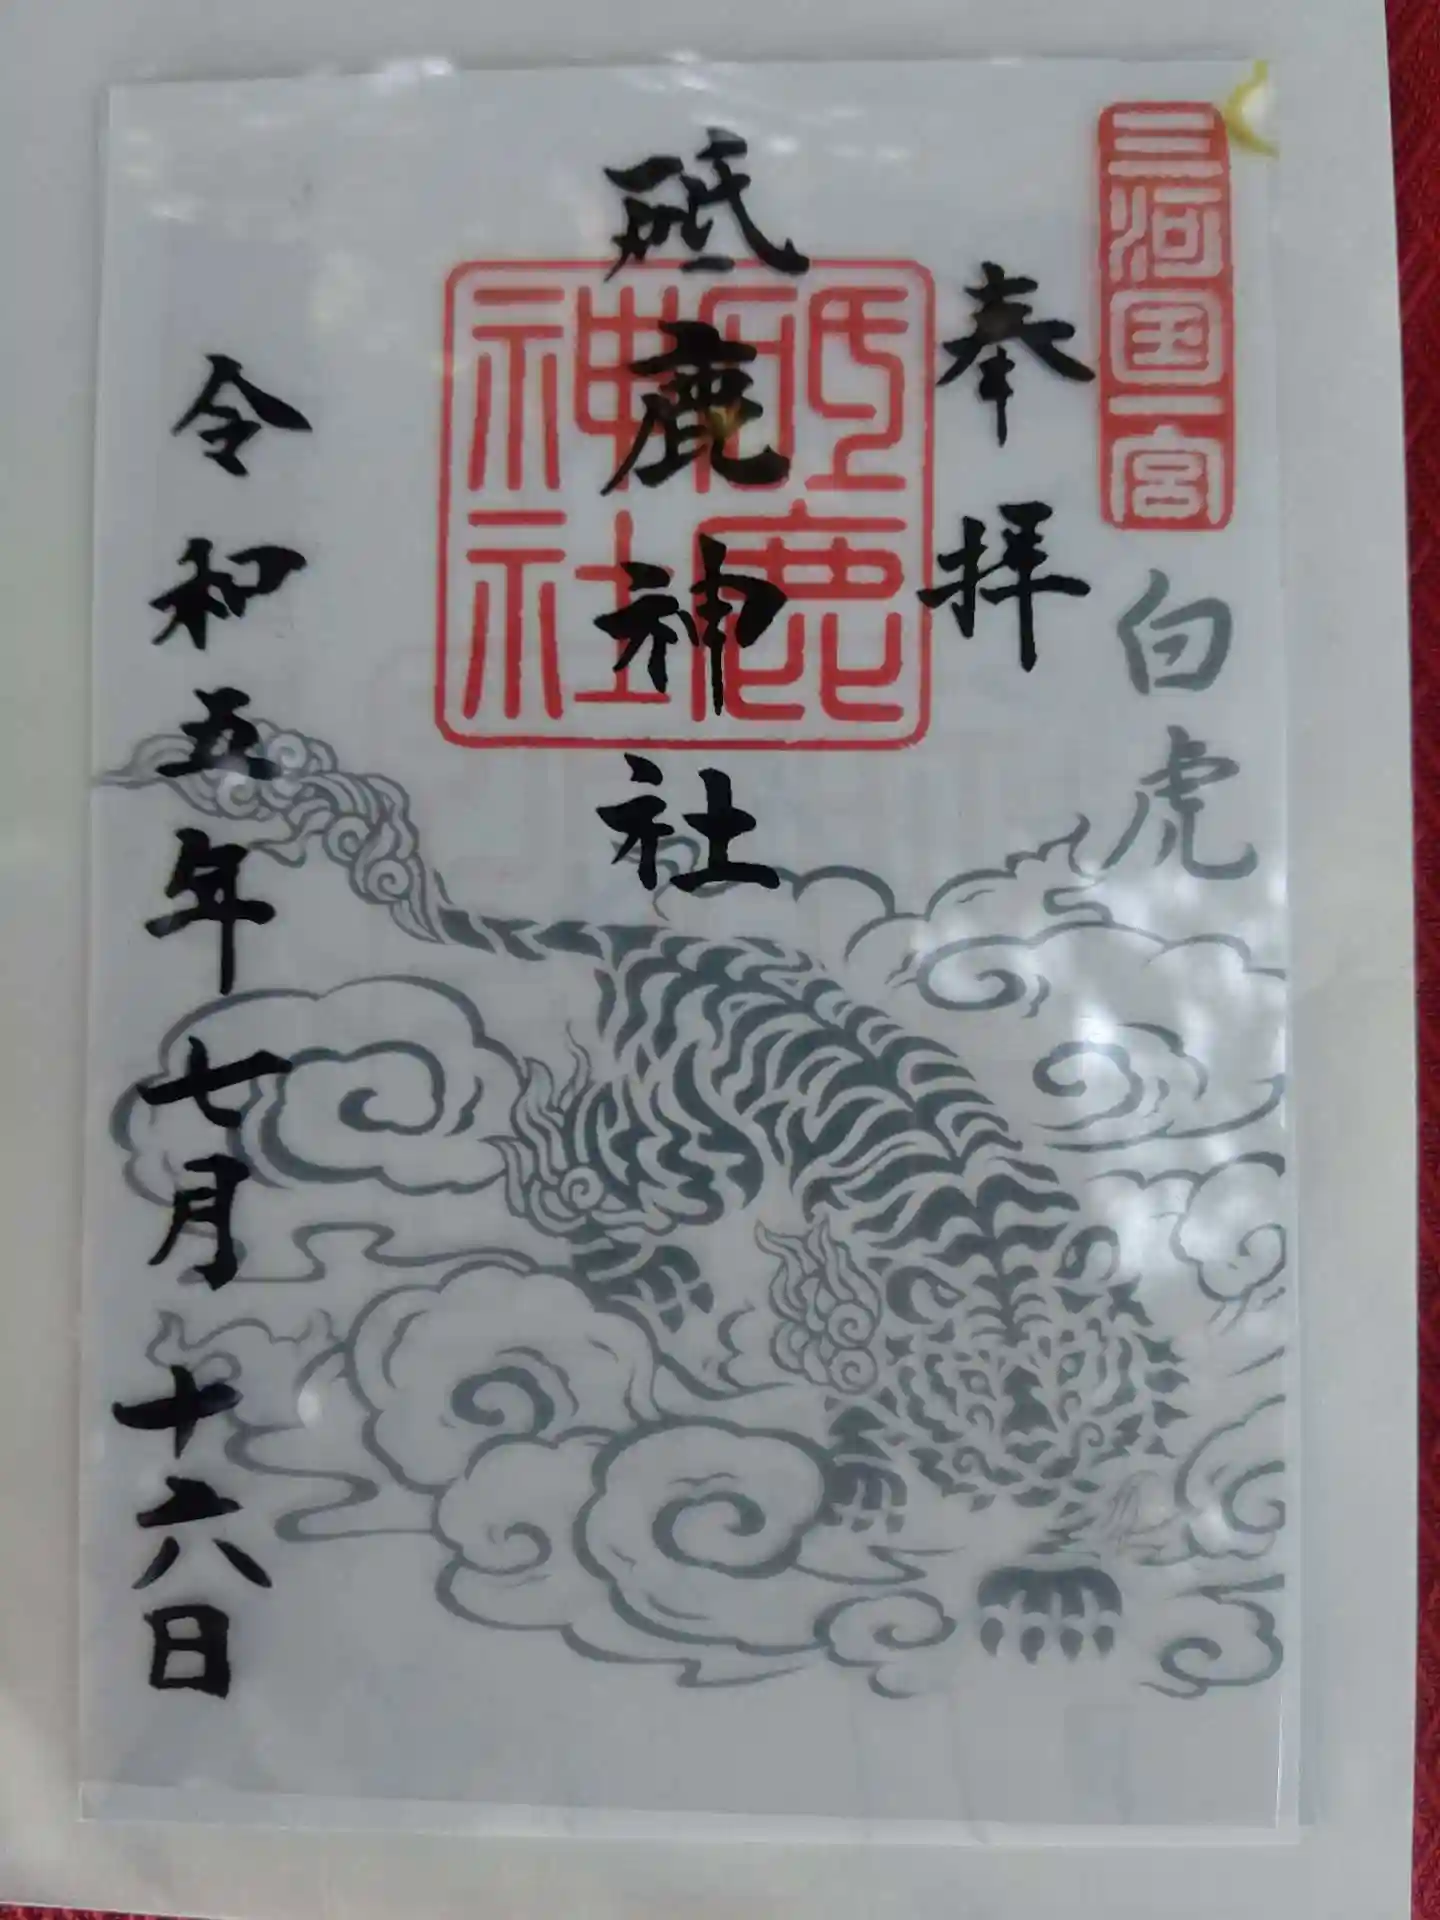 三河国一宮
白虎
奉拝
砥鹿神社
砥鹿
神社
令和五年七月十六日